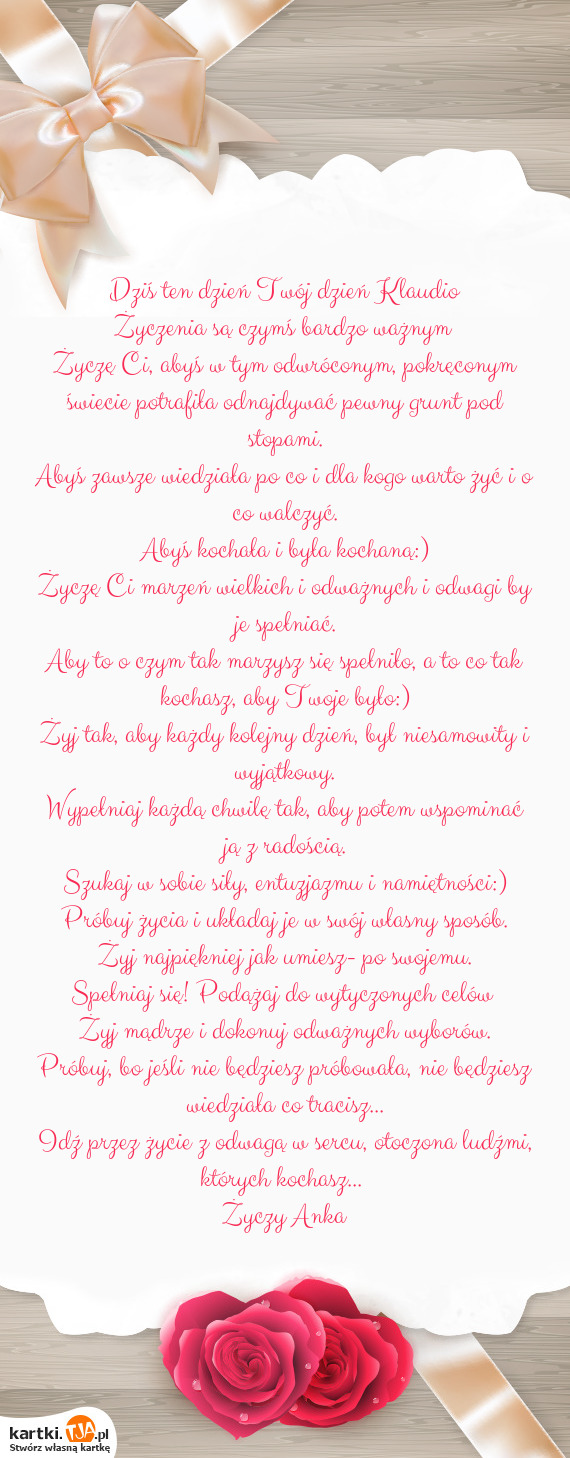 Dziś ten dzień Twój dzień Klaudio
Życzenia są czymś bardzo ważnym
Życzę Ci, abyś w tym odwróconym, pokręconym
świecie potrafiła odnajdywać pewny grunt pod
stopami.
Abyś zawsze wiedziała po co i dla kogo warto żyć i o
co walczyć.
Abyś kochała i była kochaną:)
Życzę Ci marzeń wielkich i odważnych i odwagi by
je spełniać.
Aby to o czym tak marzysz się spełniło, a to co tak
kochasz, aby Twoje było:)
Żyj tak, aby każdy kolejny dzień, był niesamowity i
wyjątkowy.
Wypełniaj każdą chwilę tak, aby potem wspominać
ją z radością.
Szukaj w sobie siły, entuzjazmu i namiętności:)
Próbuj życia i układaj je w swój własny sposób.
Żyj najpiękniej jak umiesz- po swojemu.
Spełniaj się! Podążaj do wytyczonych celów
Żyj mądrze i dokonuj odważnych wyborów.
Próbuj, bo jeśli nie będziesz próbowała, nie będziesz
wiedziała co tracisz...
Idź przez życie z odwagą w sercu, otoczona ludźmi,
których kochasz...
Życzy Anka
kartki.TJA.pl
Stwórz własną kartkę